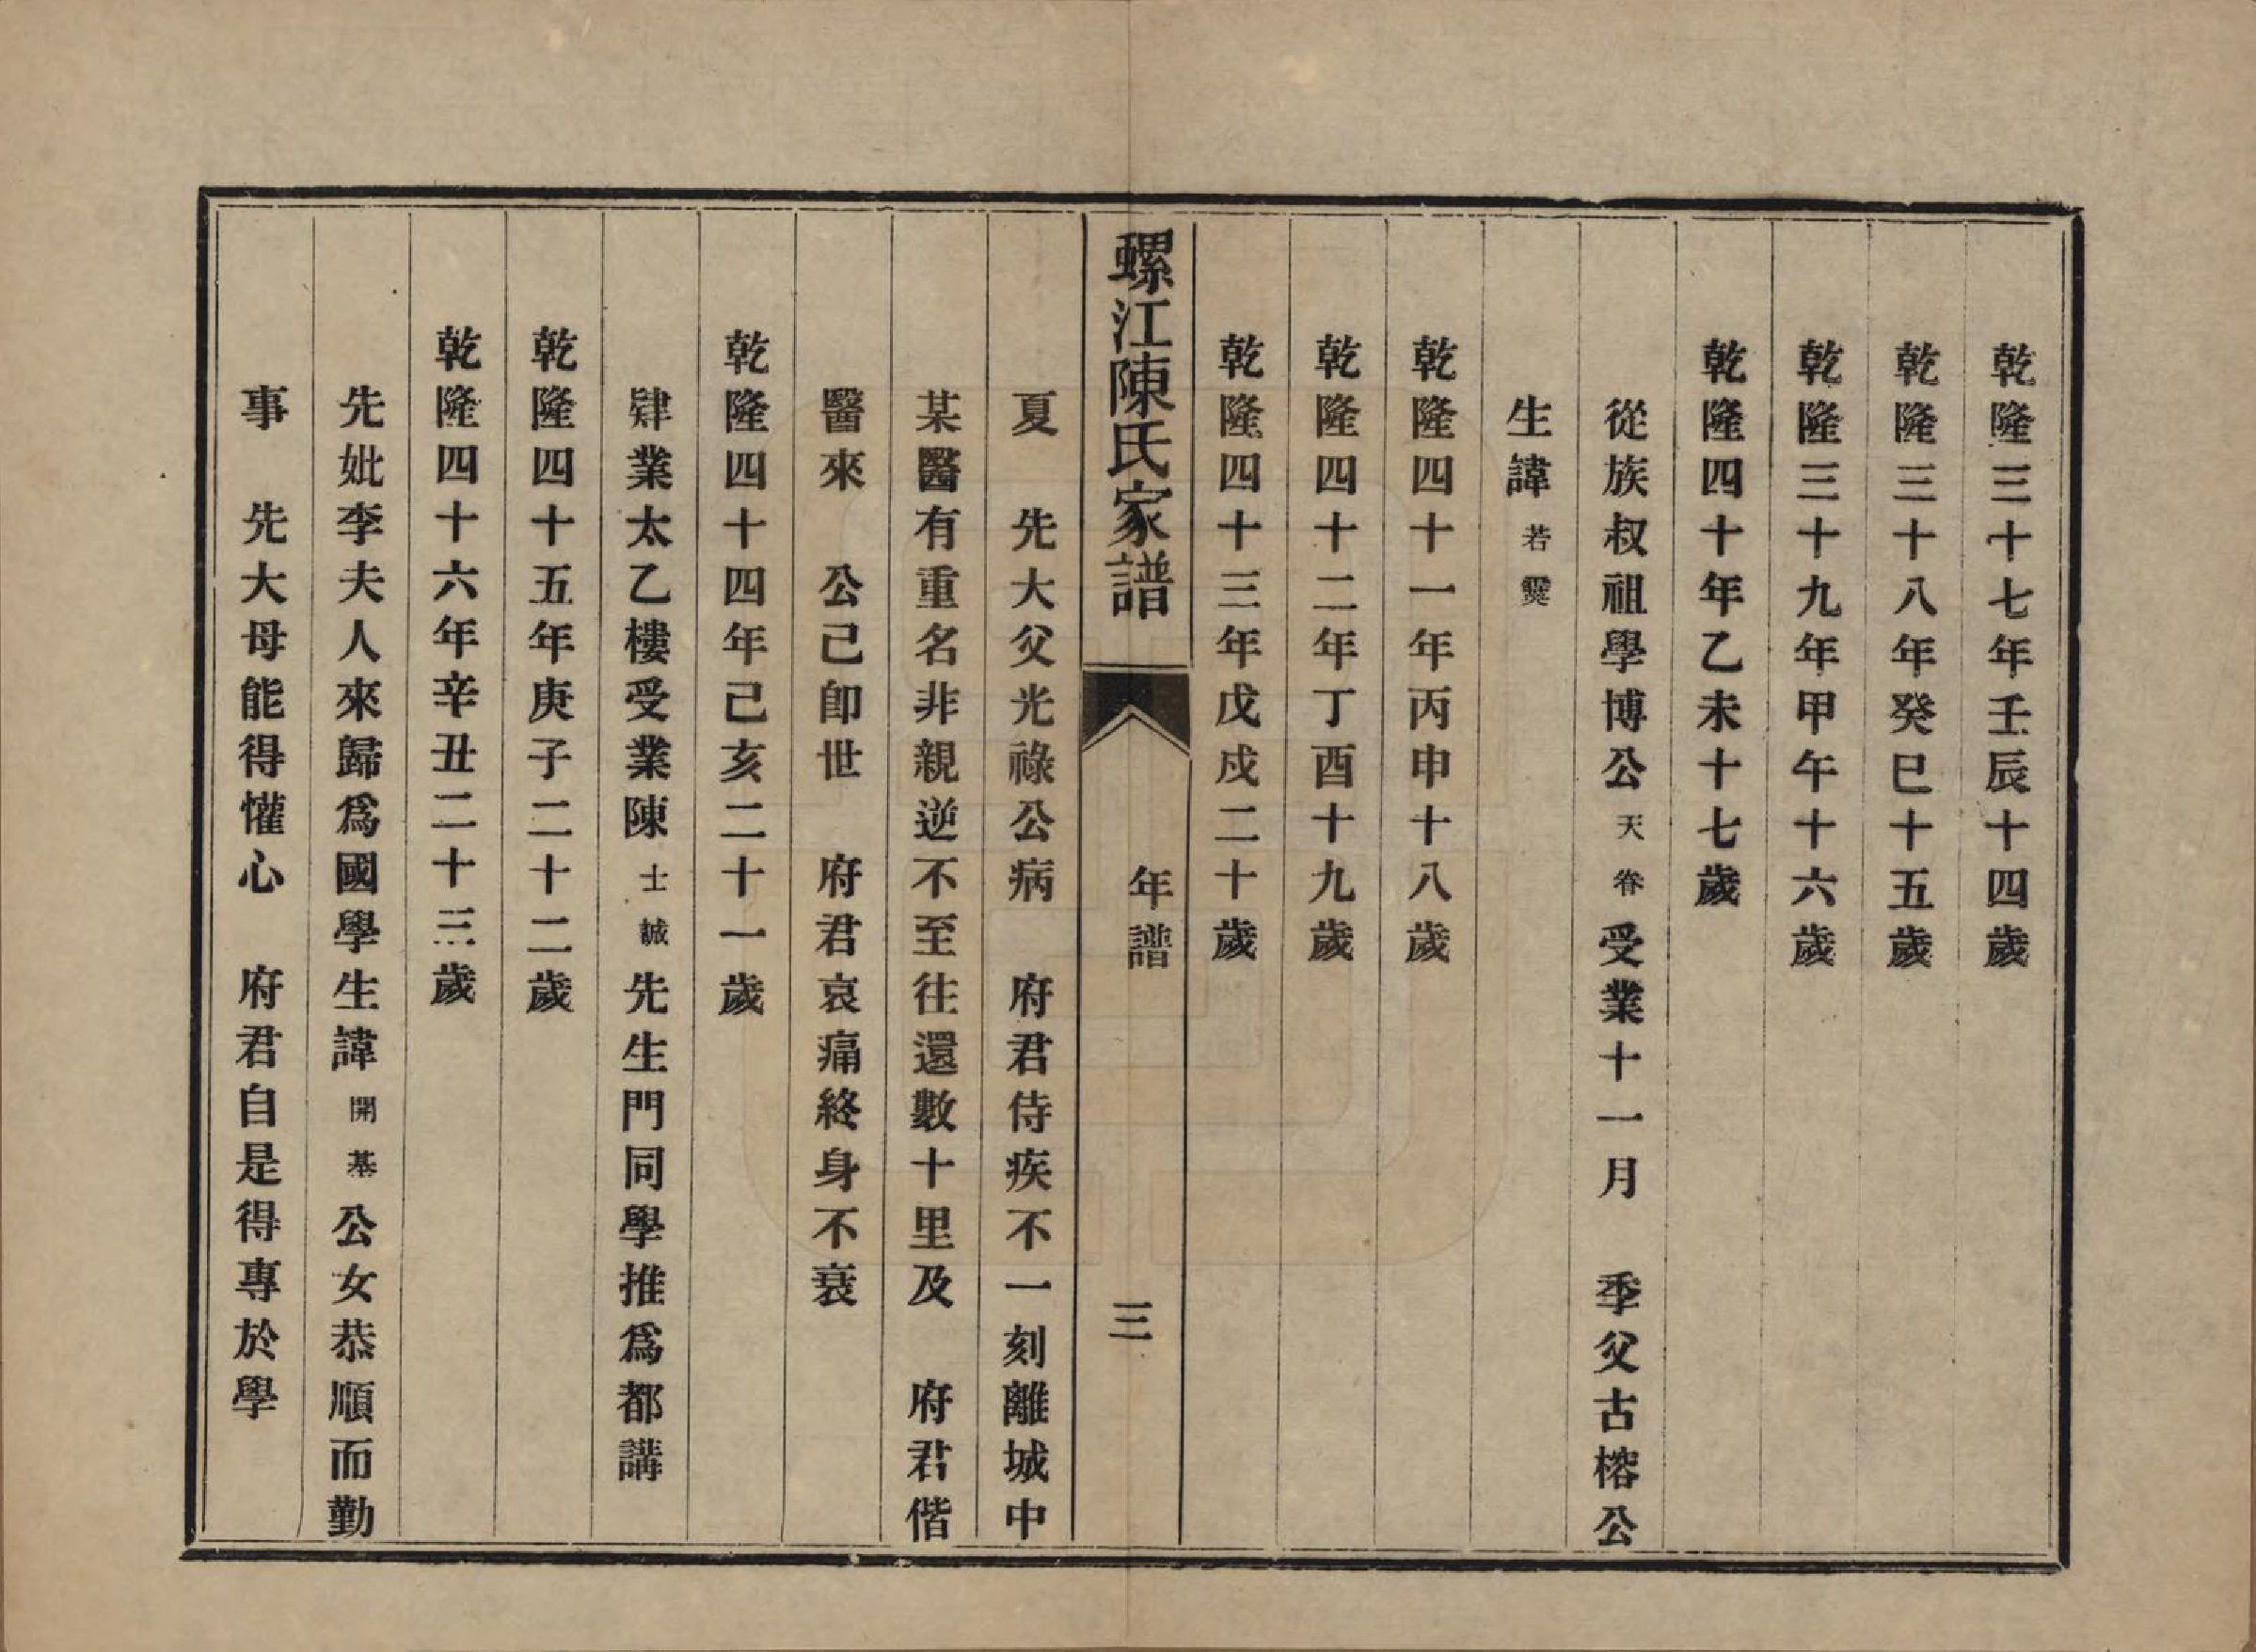 乾隆三十七年壬辰十四歲
乾隆三十八年癸巳十五歲
乾隆三十九年甲午十六歲
乾隆四十年乙未十七歲
從族叔祖學博公天眷受業十一月　季父古榕公
生諱若霙
乾隆四十一年丙申十八歲
乾隆四十二年丁酉十九歲
乾隆四十三年戊戌二十歲
螺江陳氏家譜　年譜　三
夏　先大父光祿公病　府君侍疾不一刻離城中
某醫有重名非親逆不至往還數十里及　府君偕
醫來　公己卽世　府君哀痛終身不衰
乾隆四十四年己亥二十一歲
肄業太乙樓受業陳士誠先生門同學推爲都講
乾隆四十五年庚子二十二歲
乾隆四十六年辛丑二十三歲
先妣李夫人來歸爲國學生諱開基公女恭順而勤
事　先大母能得懽心　府君自是得專於學